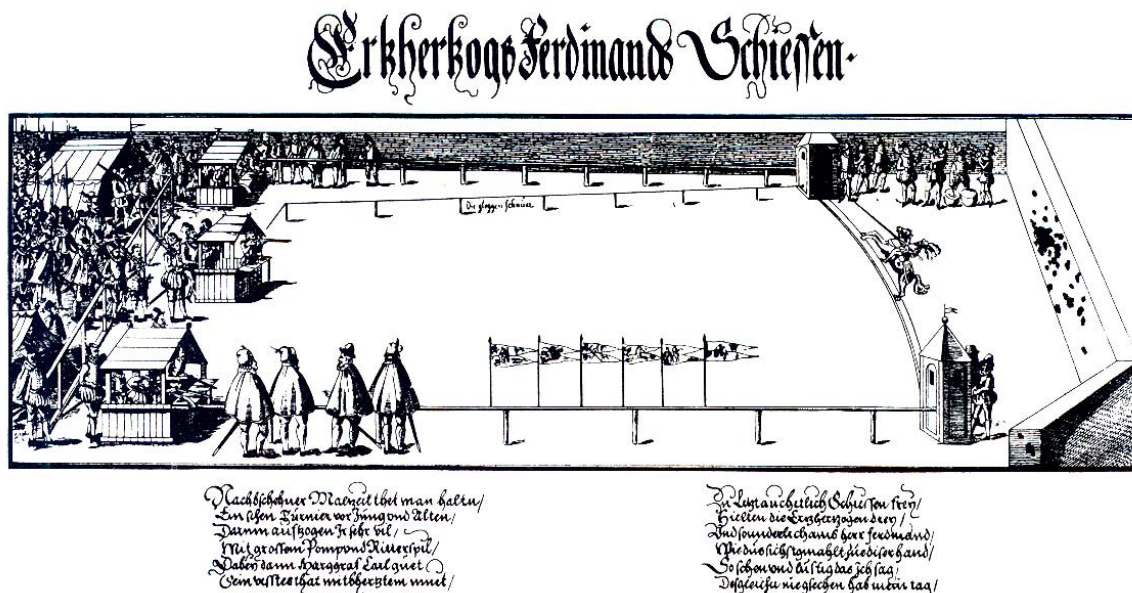 Ertzhertzogs Ferdinands Schiessen.
Die gloggen schnuer
Nach bschehner Malzeit thet man haltn/
Ein schen Turnier vor Jung und Alten/
Darinn auffzogen Ir sehr vil/
Mit grossem Pomp und Ritterspil/
Dabey dann Marggraf Carl guet
Sein that mit bhertztem muet/
Zu Letzt auch etlich Schiessen frey/
Hielten die Ertzhertzogen drey/
Und sounderlich herr ferdinand/
Wie du sichst gmahlt diser hand/
So schen und lustig das ich sag/
Desgleichn nie gsechen hab mein tag/